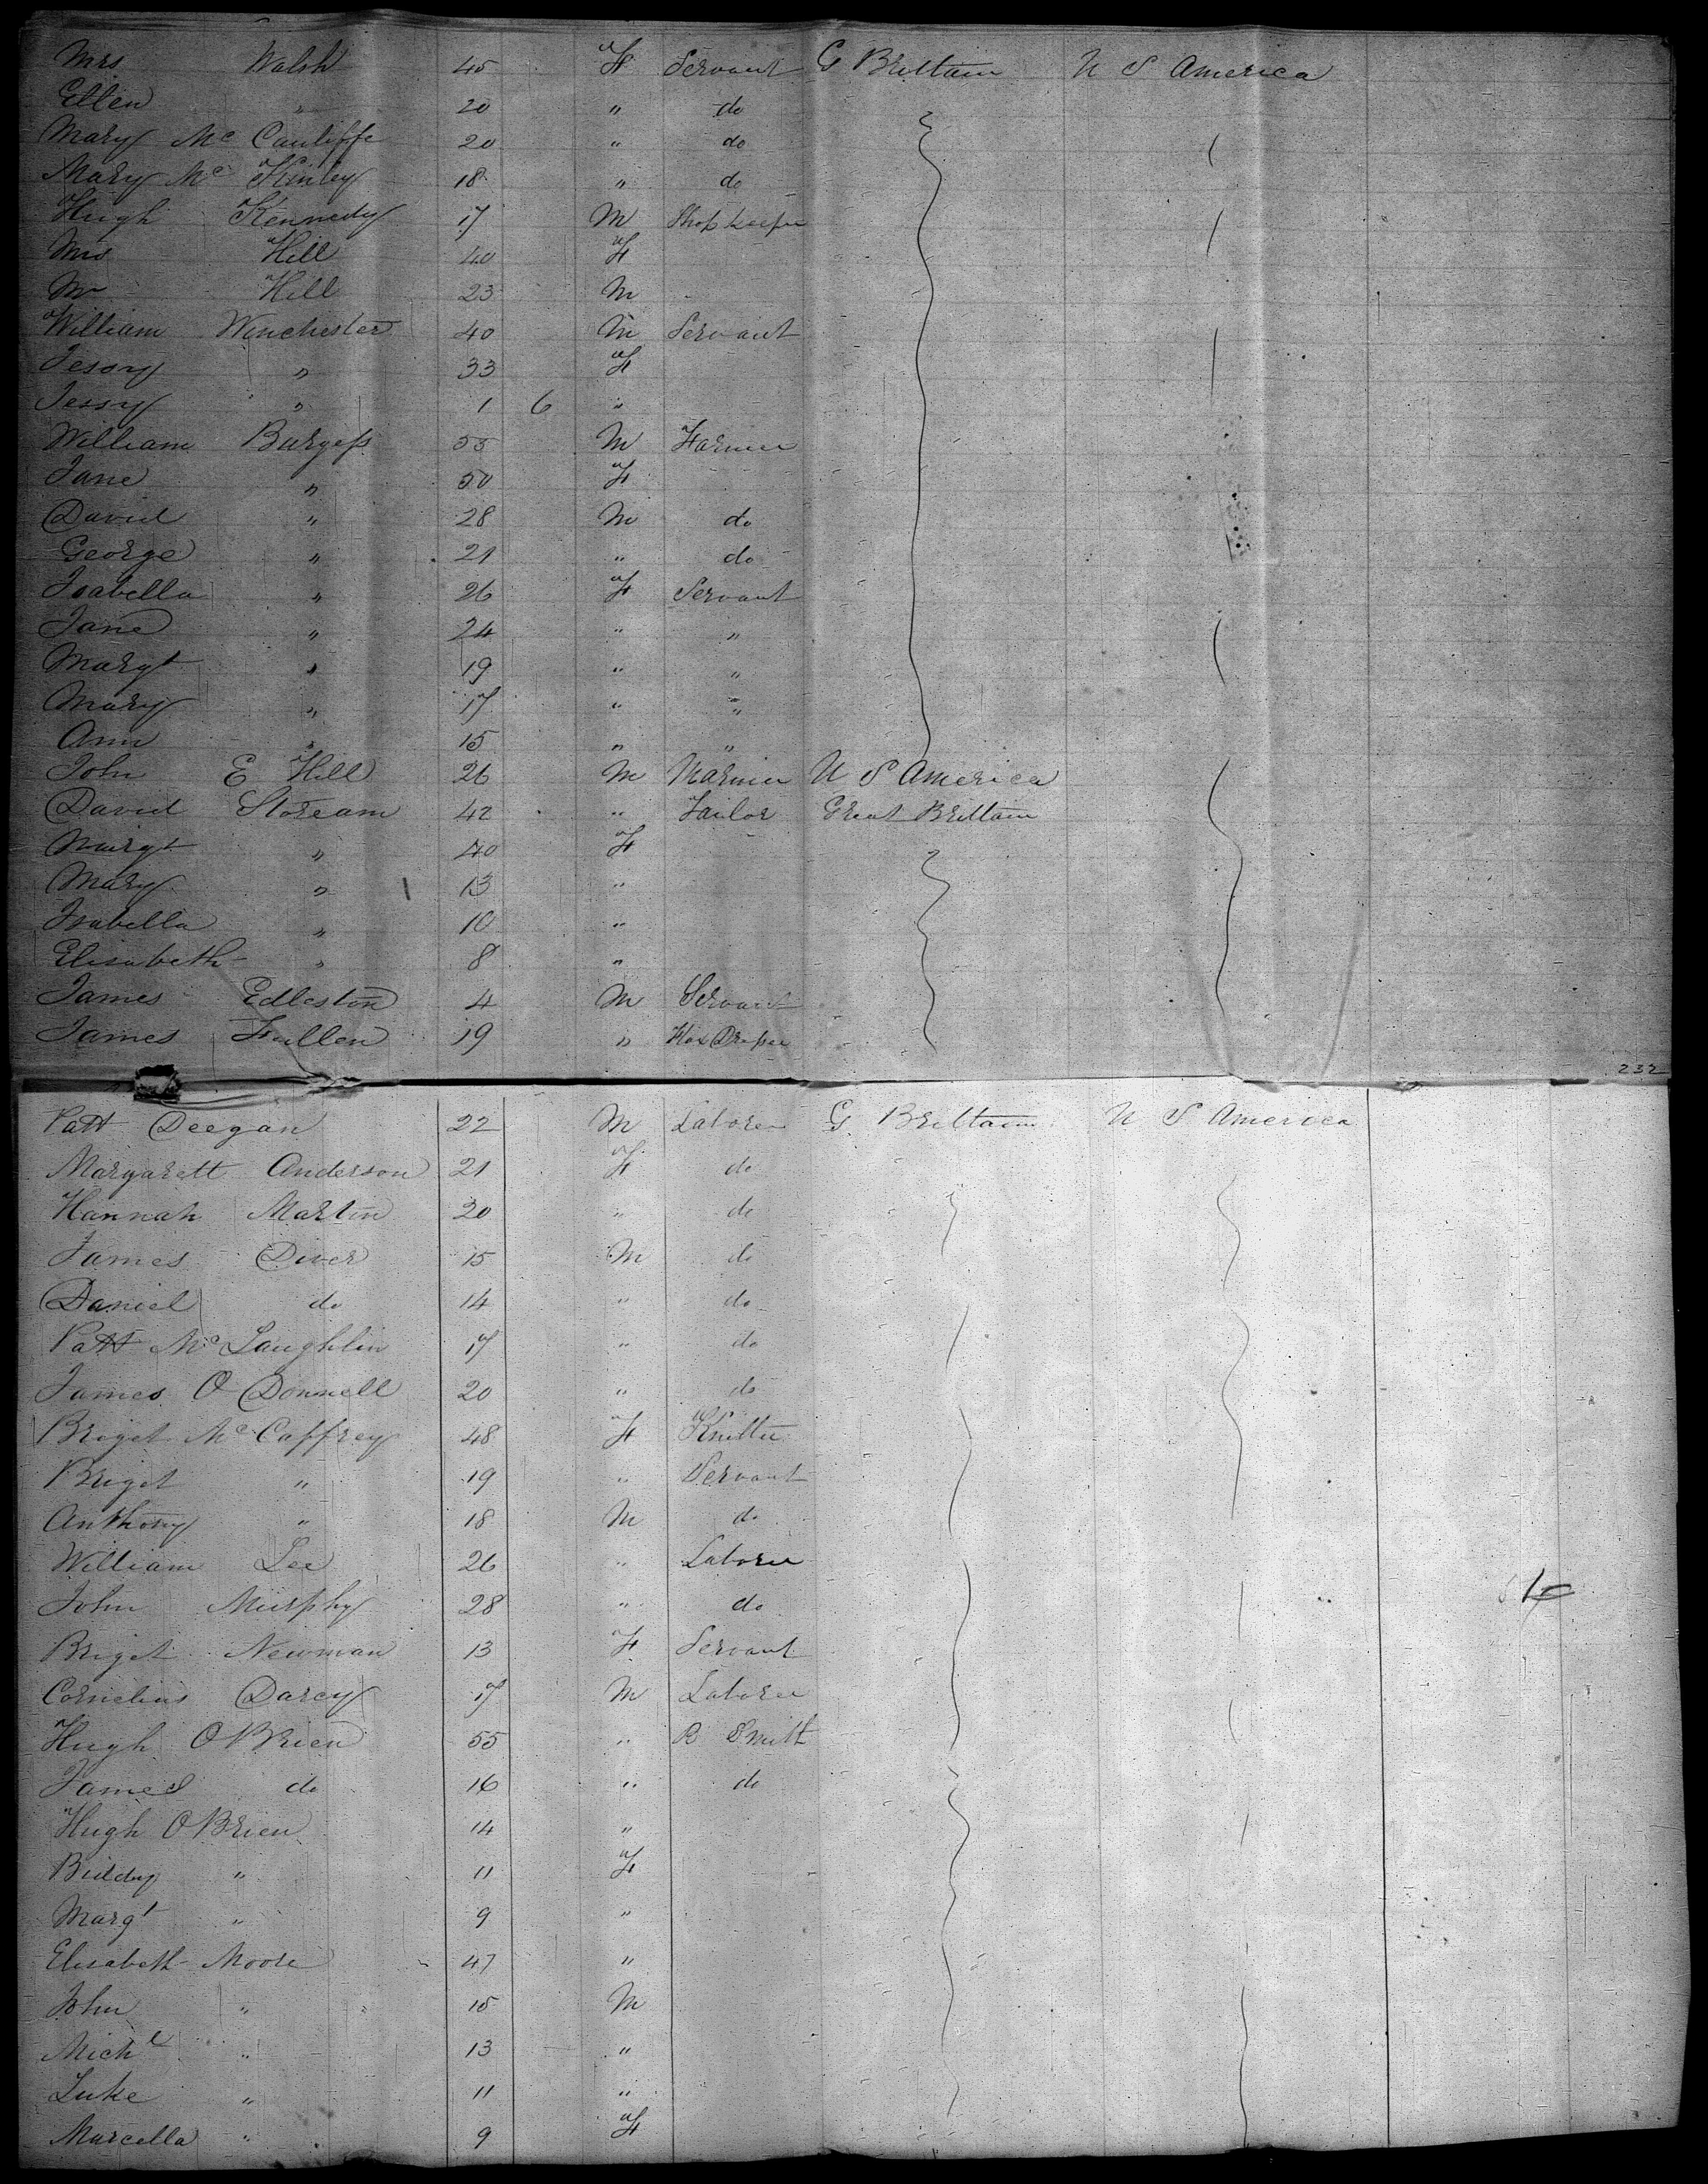 Mrs Walsh 45 F Servant G Brittain U S America
Ellen " 20 " do
Mary Mc Cauliffe 20 " do
Mary Mc Kinley 18 " do
Hugh Kennedy 17 M Shopkeeper
Mrs Hill 40 F
Mr Hill 23 M
William Winchester 40 M Servant
Jessy " 33 F
Jessy " 1 6 "
William Burgess 55 M Farmer
Jane " 50 F
David " 28 M do
George " 21 " do
Isabella " 26 F Servant
Jane " 24 " "
Margt " 19 " "
Mary " 17 " "
Ann " 15 " "
John E Hill 26 M Mariner U S America
David Stoream 42 " Tailor Great Brittain
Margt " 40 F
Mary " 13 "
Isabella " 10 "
Elisabeth " 8 "
James Edleston 4 M Servant
James Fullen 19 " Flax Draper
232
Patt Deegan 22 M Laborer G Brittain U S America
Margarett Anderson 21 F do
Hannah Martin 20 " do
James Diver 15 M do
Daniel do 14 " do
Patt McLaughlin 17 " do
James O Donnell 20 " do
Briget McCaffrey 48 F Knitter
Briget " 19 " Servant
Anthony " 18 M do
William Lee 26 " Laborer
John Murphy 28 " do
Briget Newman 13 F Servant
Cornelius Darcy 17 M Laborer
Hugh OBrien 55 " B Smith
James do 16 " do
Hugh OBrien 14 "
Biddy " 11 F
Margt " 9 "
Elisabeth Moore 47 "
John " 15 M
Michl " 13 "
Luke " 11 "
Marcella " 9 F